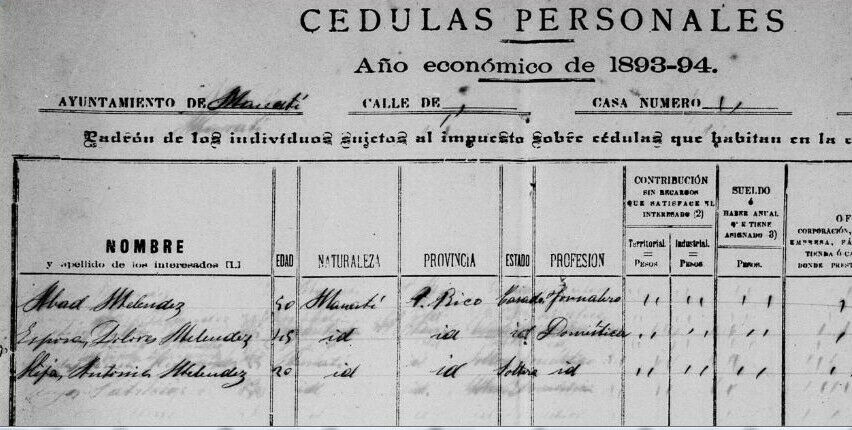 CEDULAS PERSONALES
Año económico de 1893-94.
AYUNTAMIENTO DE Manatí CALLE DE " CASA NUMERO "
Padrón de los individuos sujetos al impuesto sobre cédulas que habitan en la
NOMBRE
y apellido de los interesados (1.)
EDAD
NATURALEZA
PROVINCIA
ESTADO
PROFESION
CONTRIBUCIÓN
SIN RECARGOS
QUE SATISFACE EL
INTERESADO (2)
Territorial.
Pesos
Industrial.
Pesos
SUELDO
Ó
HABER ANUAL
QUE TIENE
ASIGNADO 3)
Pesos.
CORPORACIÓN,
EMPRESA,
TIENDA Ó
DONDE
Abad Melendez 50 Manatí P. Rico Casado Jornalero " " "
Esposa, Dolores Melendez 45 id id id Doméstica " " "
Hija, Antonia Melendez 20 id id Soltera id " " "